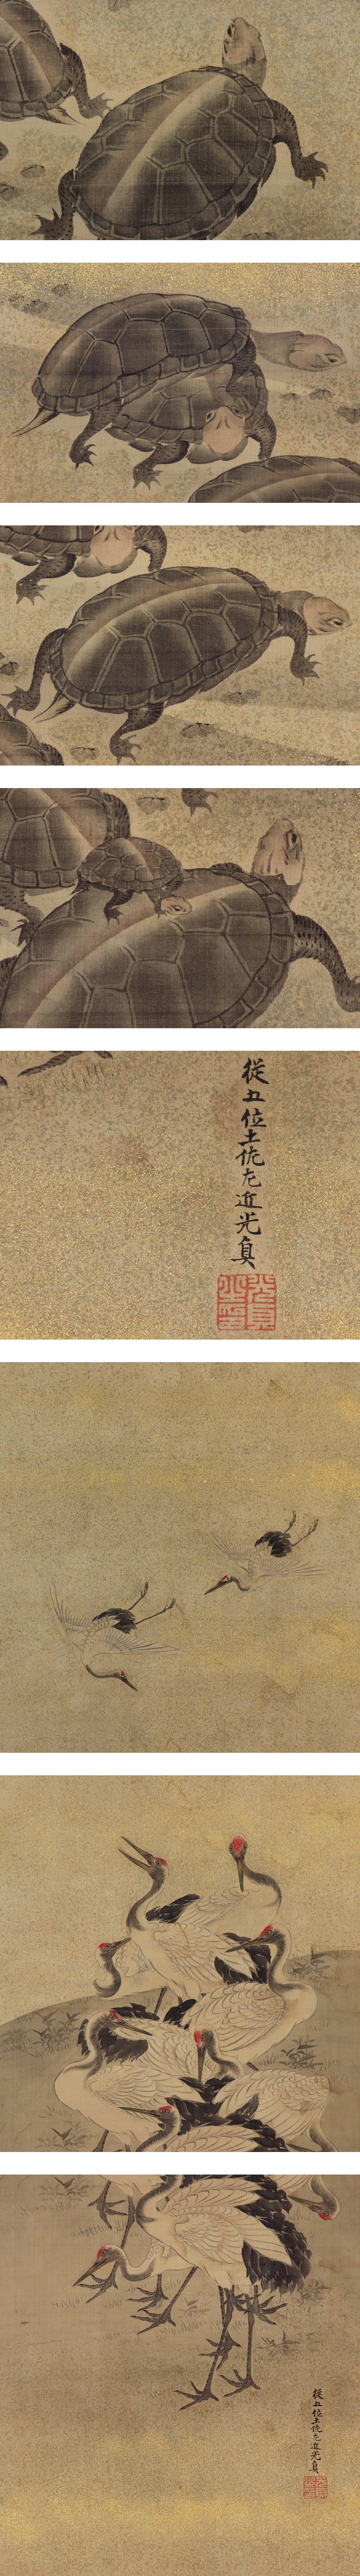 従五位土佐左近光貞
従五位土佐左近光貞